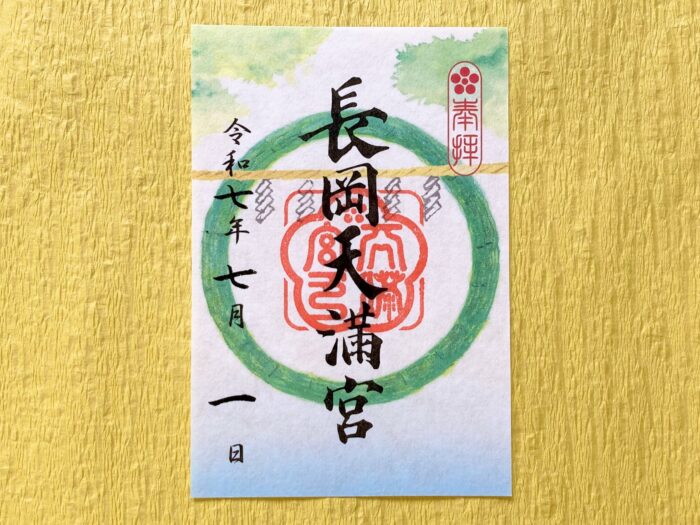 奉拝
長岡天満宮
令和七年七月一日